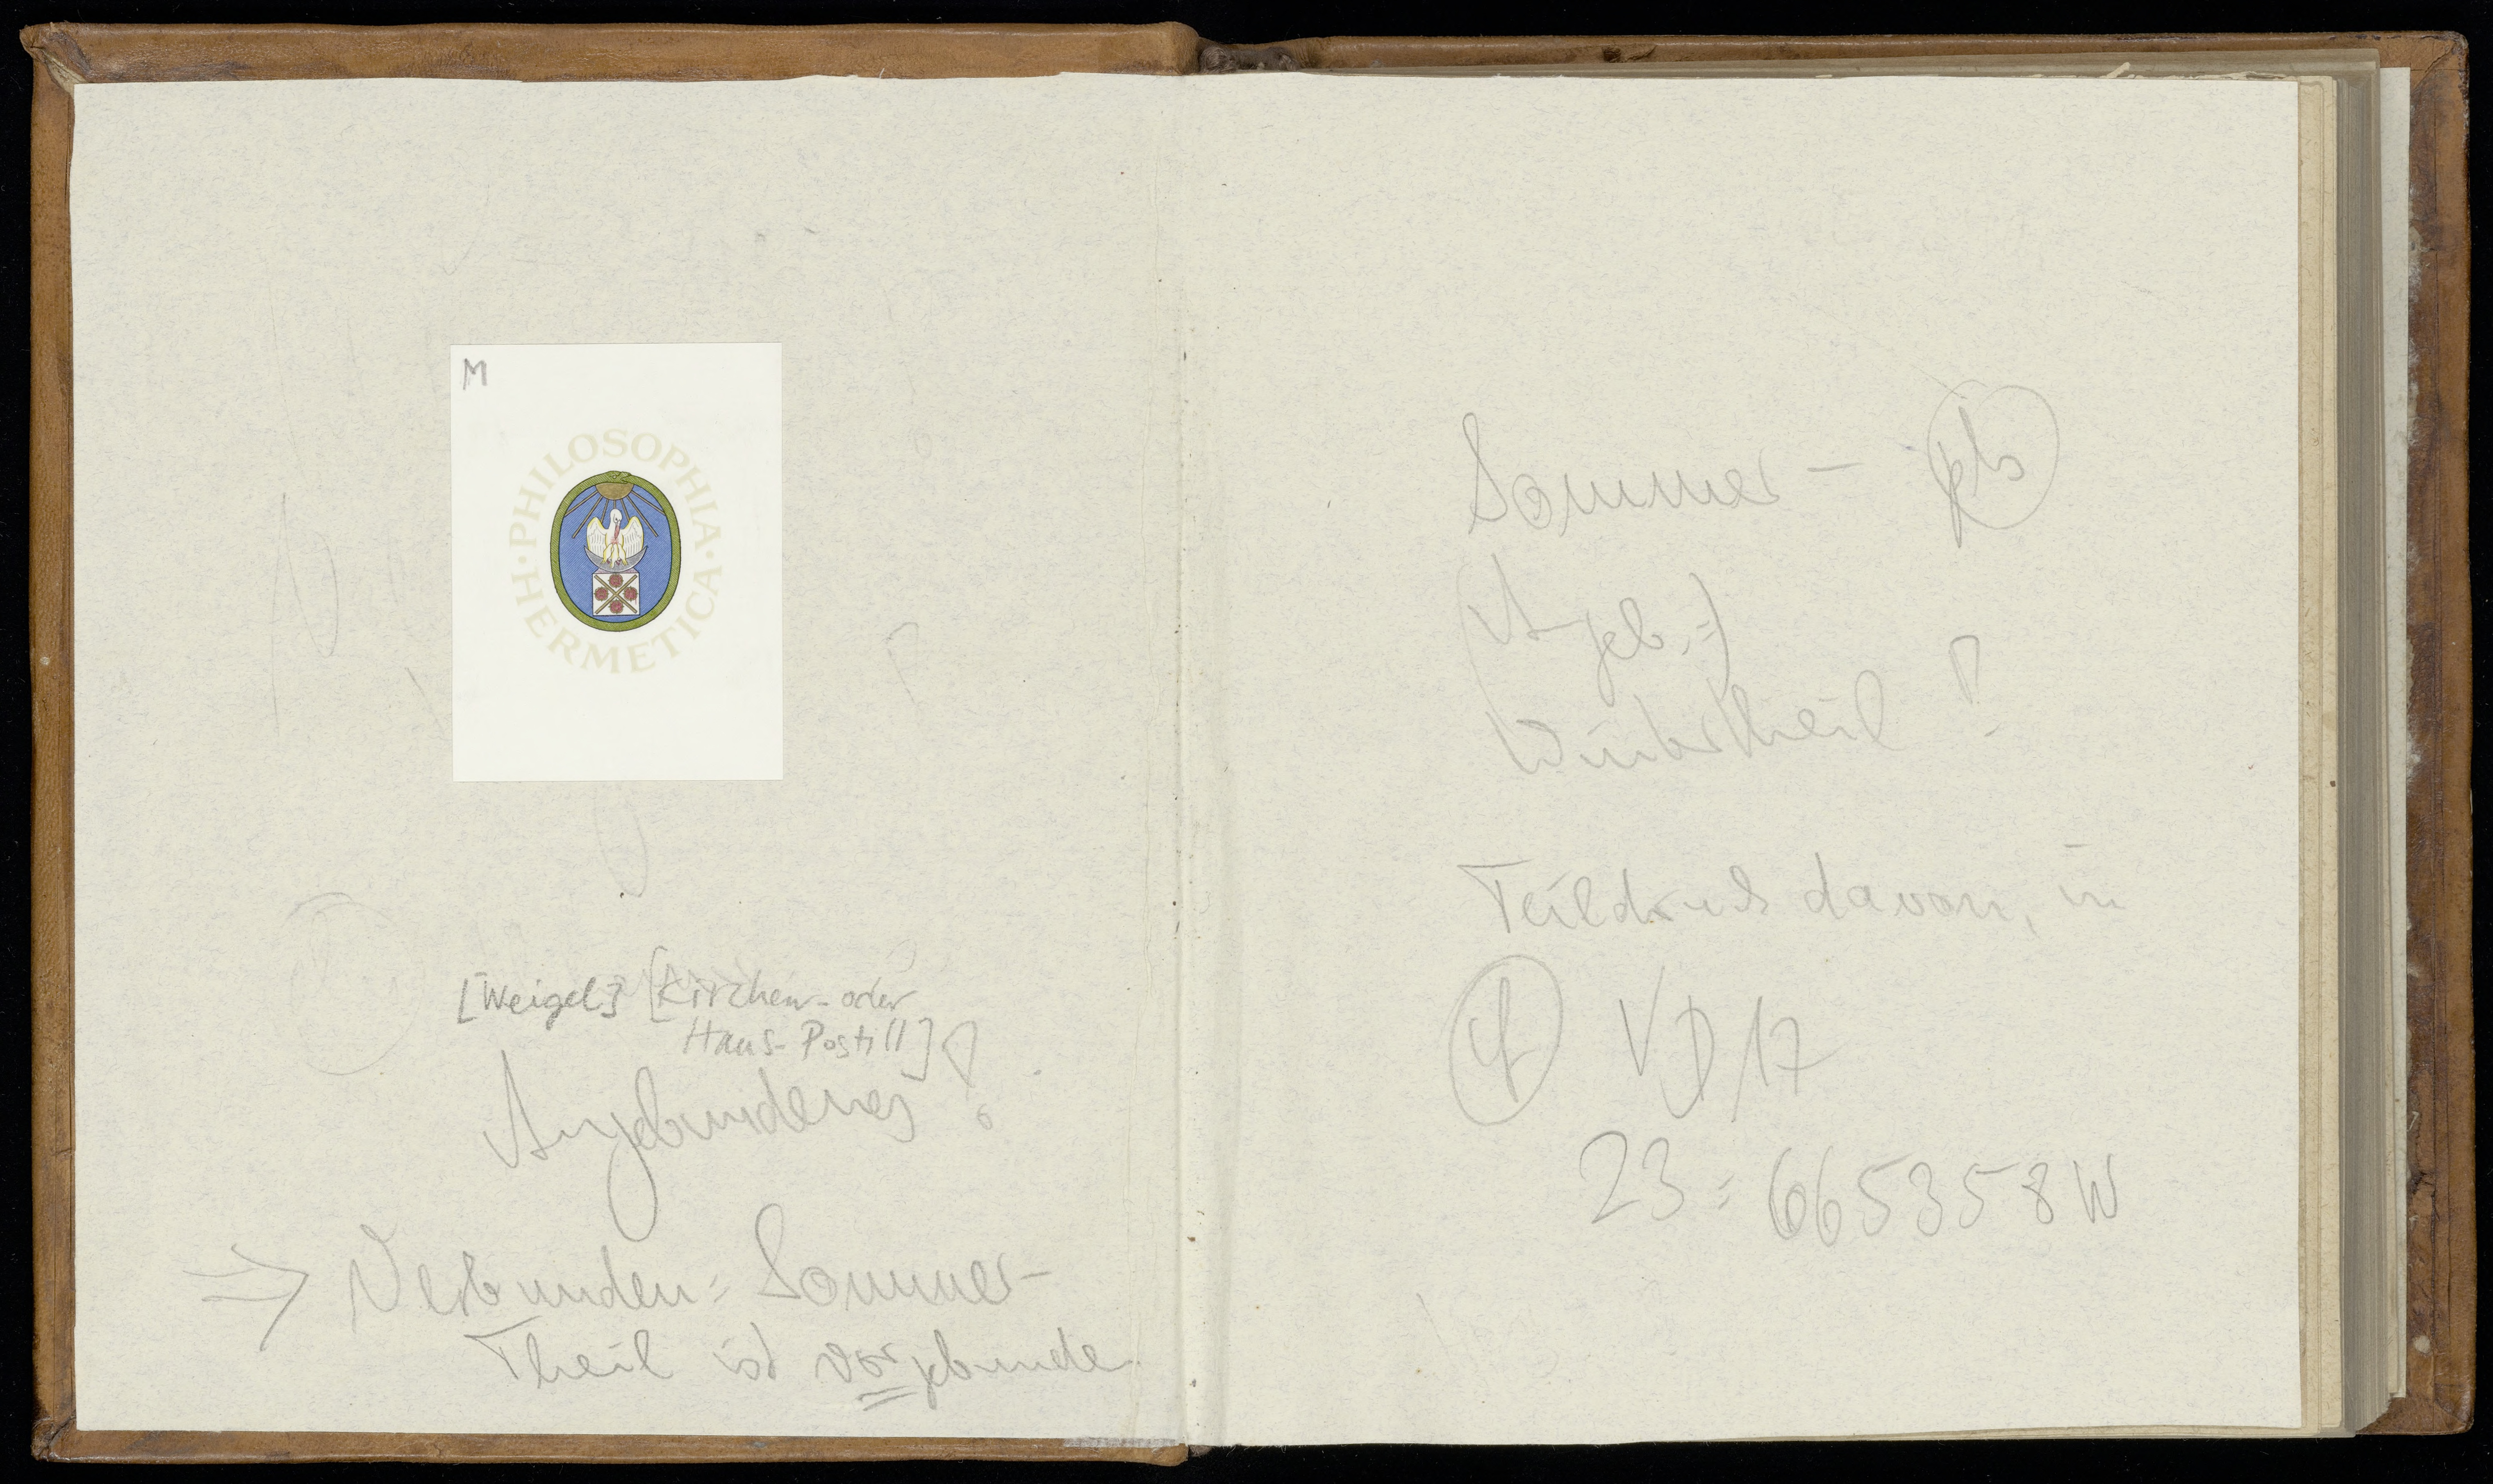 M
PHILOSOPHIA · HERMETICA ·
[Weigel] [Kirchen- oder
Haus-Postill]
Angebundenes!
⇒ Verbunden: Sommer-
Theil ist vorgebunden
Sommer –
Angeb.:)
Winterteil !
Teildruck davon, in
VD17
23: 665358W